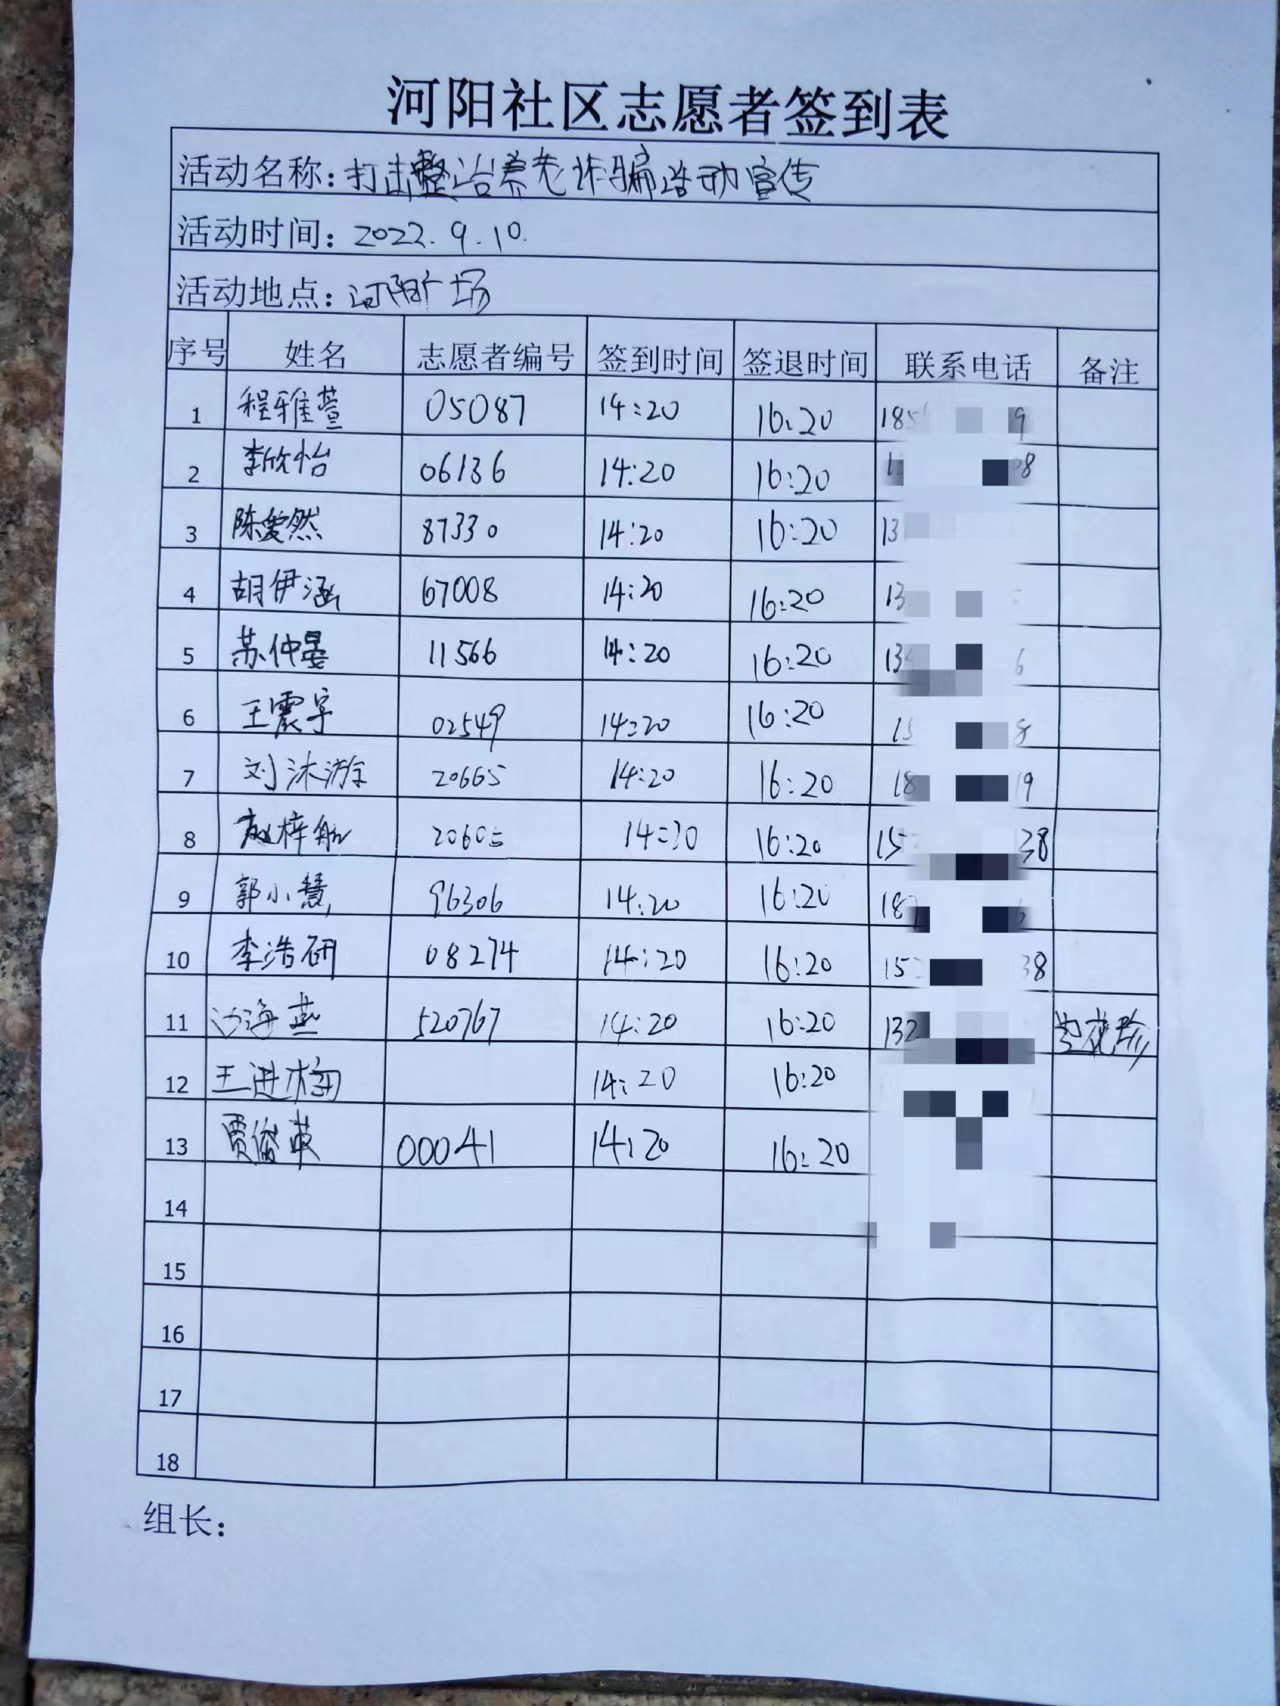 河阳社区志愿者签到表
活动名称：打击整治养老诈骗活动宣传
活动时间：2022.9.10.
活动地点：河阳广场
序号 姓名 志愿者编号 签到时间 签退时间 联系电话 备注
1 程雅萱 05087 14:20 16:20 185 9
2 李欣怡 06136 14:20 16:20 1 8
3 陈爱然 87330 14:20 16:20 13
4 胡伊涵 67008 14:20 16:20 13
5 苏仲晏 11566 14:20 16:20 13 6
6 王震宇 02549 14:20 16:20 15 8
7 刘沐游 20665 14:20 16:20 18 19
8 赵梓航 14:20 16:20 15 38
9 郭小慧 96306 14:20 16:20 18 6
10 李浩研 08274 14:20 16:20 15 38
11 海燕 520767 14:20 16:20 132
12 王进梅 14:20 16:20
13 贾俊英 00041 14:20 16:20
14
15
16
17
18
组长：